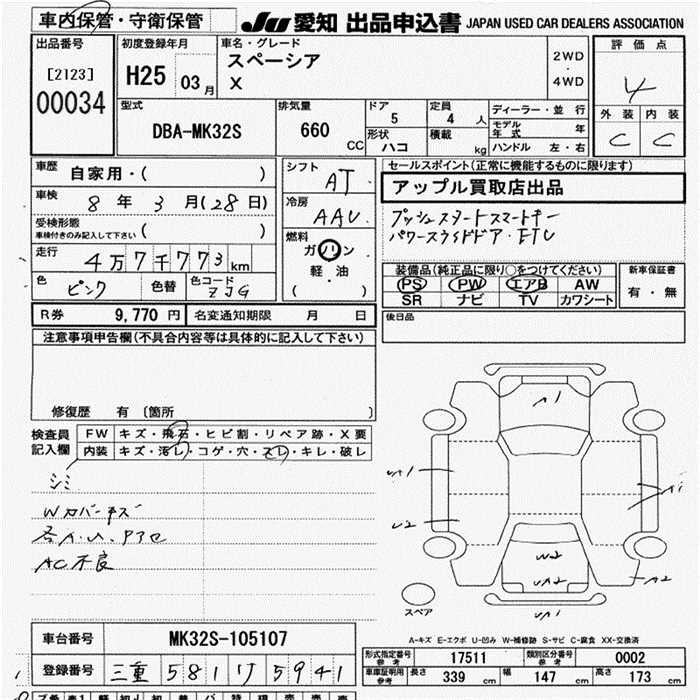 車内保管・守衛保管
JU 愛知 出品申込書 JAPAN USED CAR DEALERS ASSOCIATION
出品番号
[2123]
00034
初度登録年月
H25 03月
車名・グレード
スペーシア
X
2WD
・
4WD
評価点
4
外装 内装
C C
型式
DBA-MK32S
排気量
660 CC
ドア
5
定員
4 人
形状
ハコ
積載
kg
ディーラー・並行
モデル年式 年
ハンドル 左・右
車歴 自家用・( )
車検 8年 3月(28日)
受検形態
車検付きのみ記入して下さい ( )
走行 4万7千773km
色 ピンク 色替 色コード ZJG
シフト
AT
冷房
AAC
燃料
ガソリン
軽・油
( )
セールスポイント(正常に機能するものに限ります)
アップル買取店出品
プッシュスタートスマートキー
パワースライドドア・ETC
装備品(純正品に限り○をつけてください)
PS PW エアB AW
SR ナビ TV カワシート
新車保証書
有・無
R券 9,770円 名変通知期限 月 日
後日品
注意事項申告欄(不具合内容等は具体的に記入して下さい)
修復歴 有〔箇所 〕
検査員記入欄
FW キズ・飛石・ヒビ割・リペア跡・X要
内装 キズ・汚レ・コゲ・穴・スレ・キレ・破レ
シミ
Wカバーキズ
各A.U.アワセ
AC不良
A1
UA1
U2
A1
W2
UA2
A2
UA1
スペア
A-キズ E-エクボ U-凹み W-補修跡 S-サビ C-腐食 XX-交換済
車台番号 MK32S-105107
登録番号 三重 581 け 5941
形式指定番号 参考 17511 類別区分番号 参考 0002
車庫証明用 参考 長さ 339 cm 幅 147 cm 高さ 173 cm